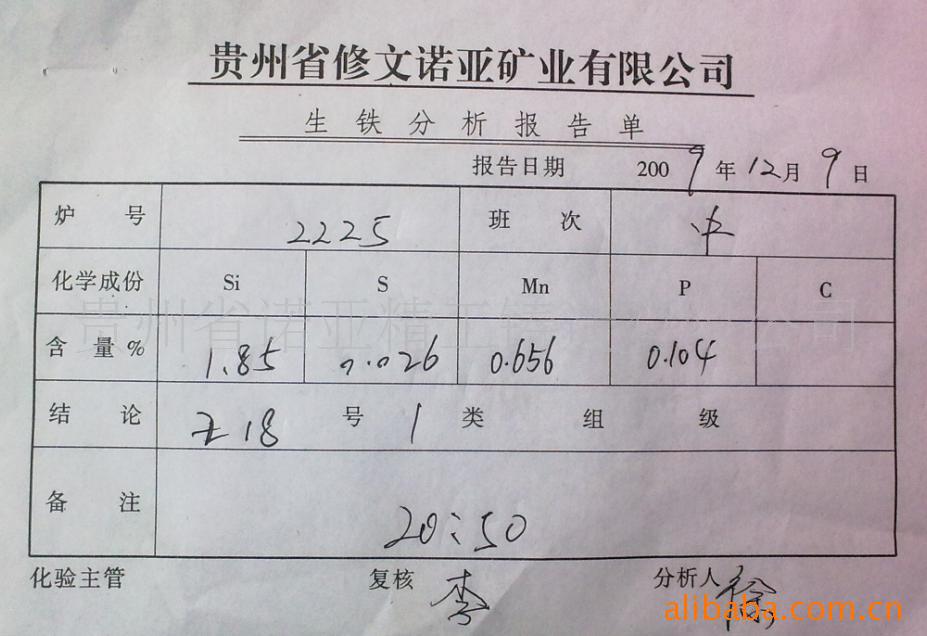 贵州省修文诺亚矿业有限公司
生铁分析报告单
报告日期 2009年12月9日
炉号 2225 班次 中
化学成份 Si S Mn P C
贵州省诺亚精工铸 公司
含量% 1.85 0.026 0.656 0.104
结论 Z18 号 1 类 组 级
备注 20:50
化验主管 复核 李 分析人 徐
alibaba.com.cn